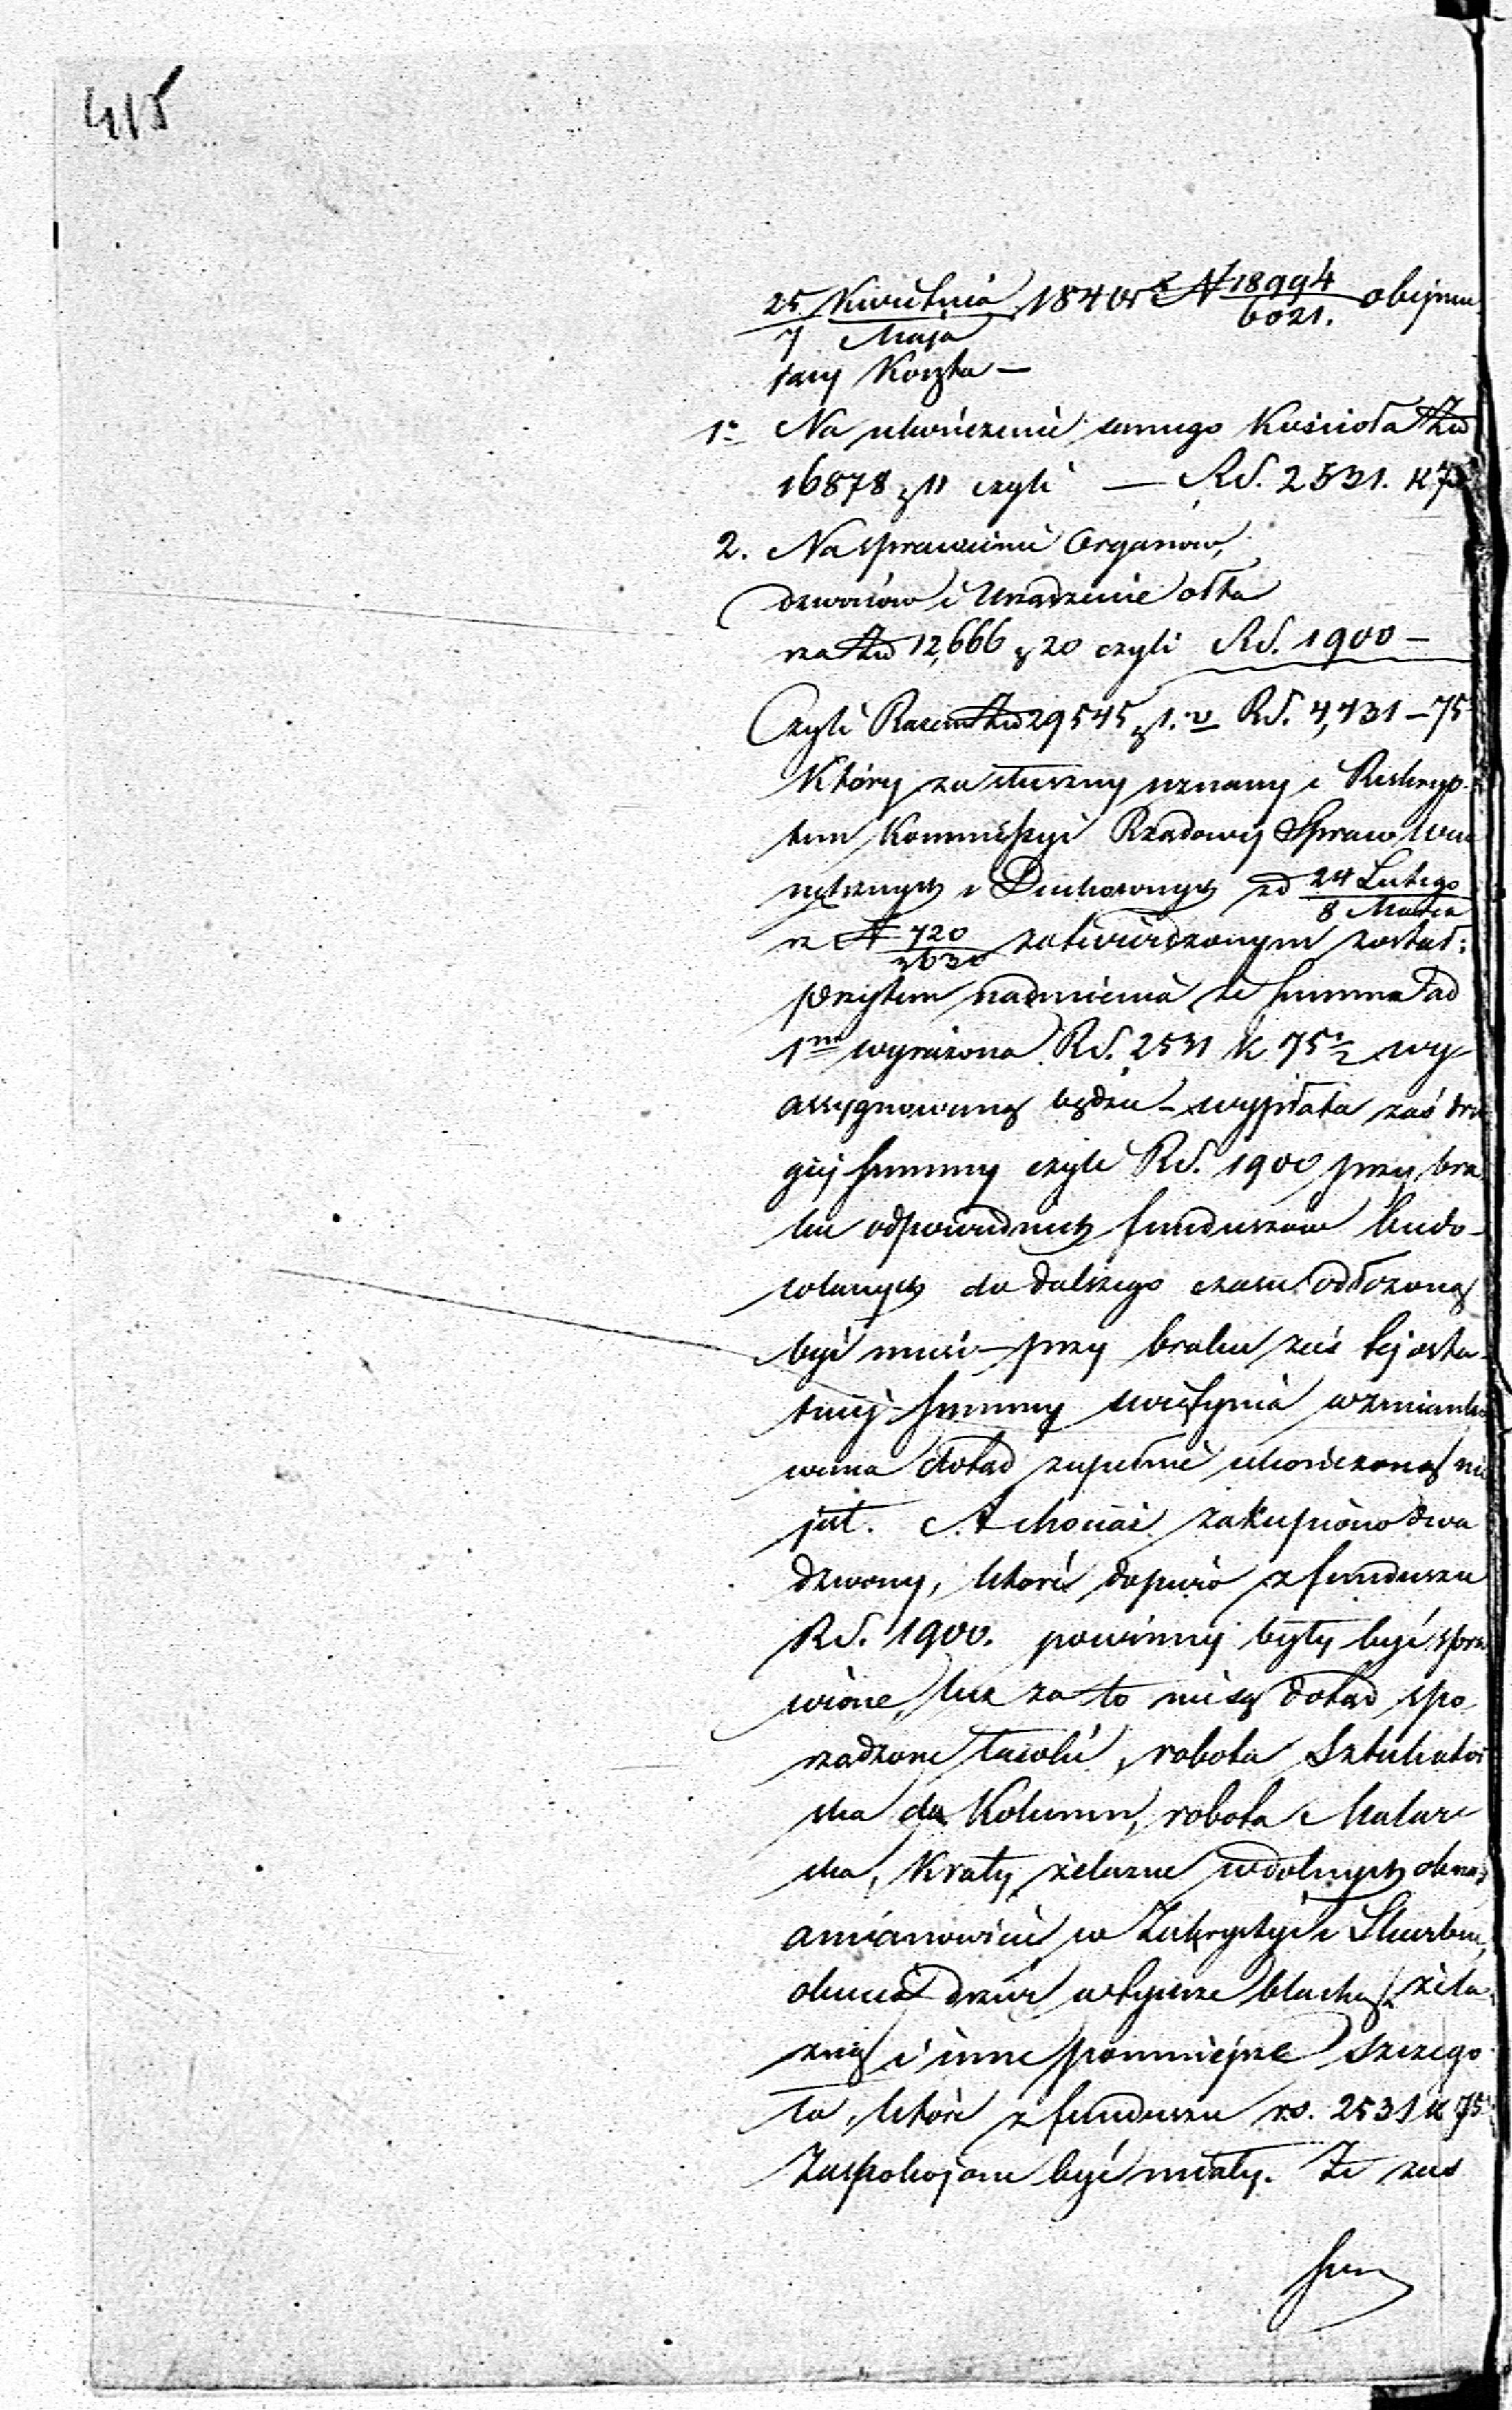 415
25 Kwietnia 1840 r z N 18994 obejmu
7 Maja 6021.
jący Koszta —
1o Na ukończenie samego Kościoła Złp
16878 g 11 czyli — RS. 2531. k 75
2. Na sprawienie Organów,
dzwonów i Urządzenie ołta
rza Złp 12,666 g 20 czyli RS. 1900 —
Czyli Razem Złp 29545 g 1. v RS. 4,431 — 75
Który za słuszny uznany i Reskryp
tem Kommissyi Rządowej Spraw Wew
nętrznych i Duchownych z d 24 Lutego
8 Marca
r z N 720 zatwierdzonym został:
2630
przytem nadmienia że summa ad
1mo wyrażona RS. 2531 k 75½ wy
assygnowaną będzie — wypłata zaś dru
giej summy czyli RS. 1900 przy bra
ku odpowiednich funduszów budo-
wlanych do dalszego czasu odłożoną
być musi — przy braku zaś tej osta-
tniej summy świątynia wzmianko
wana dotąd zupełnie ukończoną nie
jest. A chociaż zakupiono dwa
dzwony, które dopiero z funduszu
RS. 1900. powinny były być spra
wione, lecz za to nie są dotąd spo
rządzone ławki, robota Sztukator
ska do Kolumn, robota Malar-
ska, Kraty żelazne w dolnych oknach
a mianowicie w Zakrystyi i Skarbcu,
okucie drzwi w tyemże blachą żela-
zną i inne pomniejsze szczegó
ła, które z funduszu rs. 2531 k 75
Zaspokojone być miały. Że zaś
sum